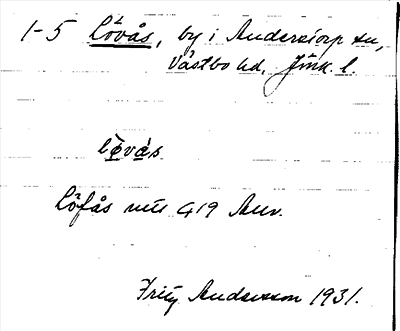 1-5 Lövås, by i Anderstorp sn,
Västbo hd. Jönk. l.
lövås
Löfås mtl 419 Anv.
Fritz Andersson 1931.